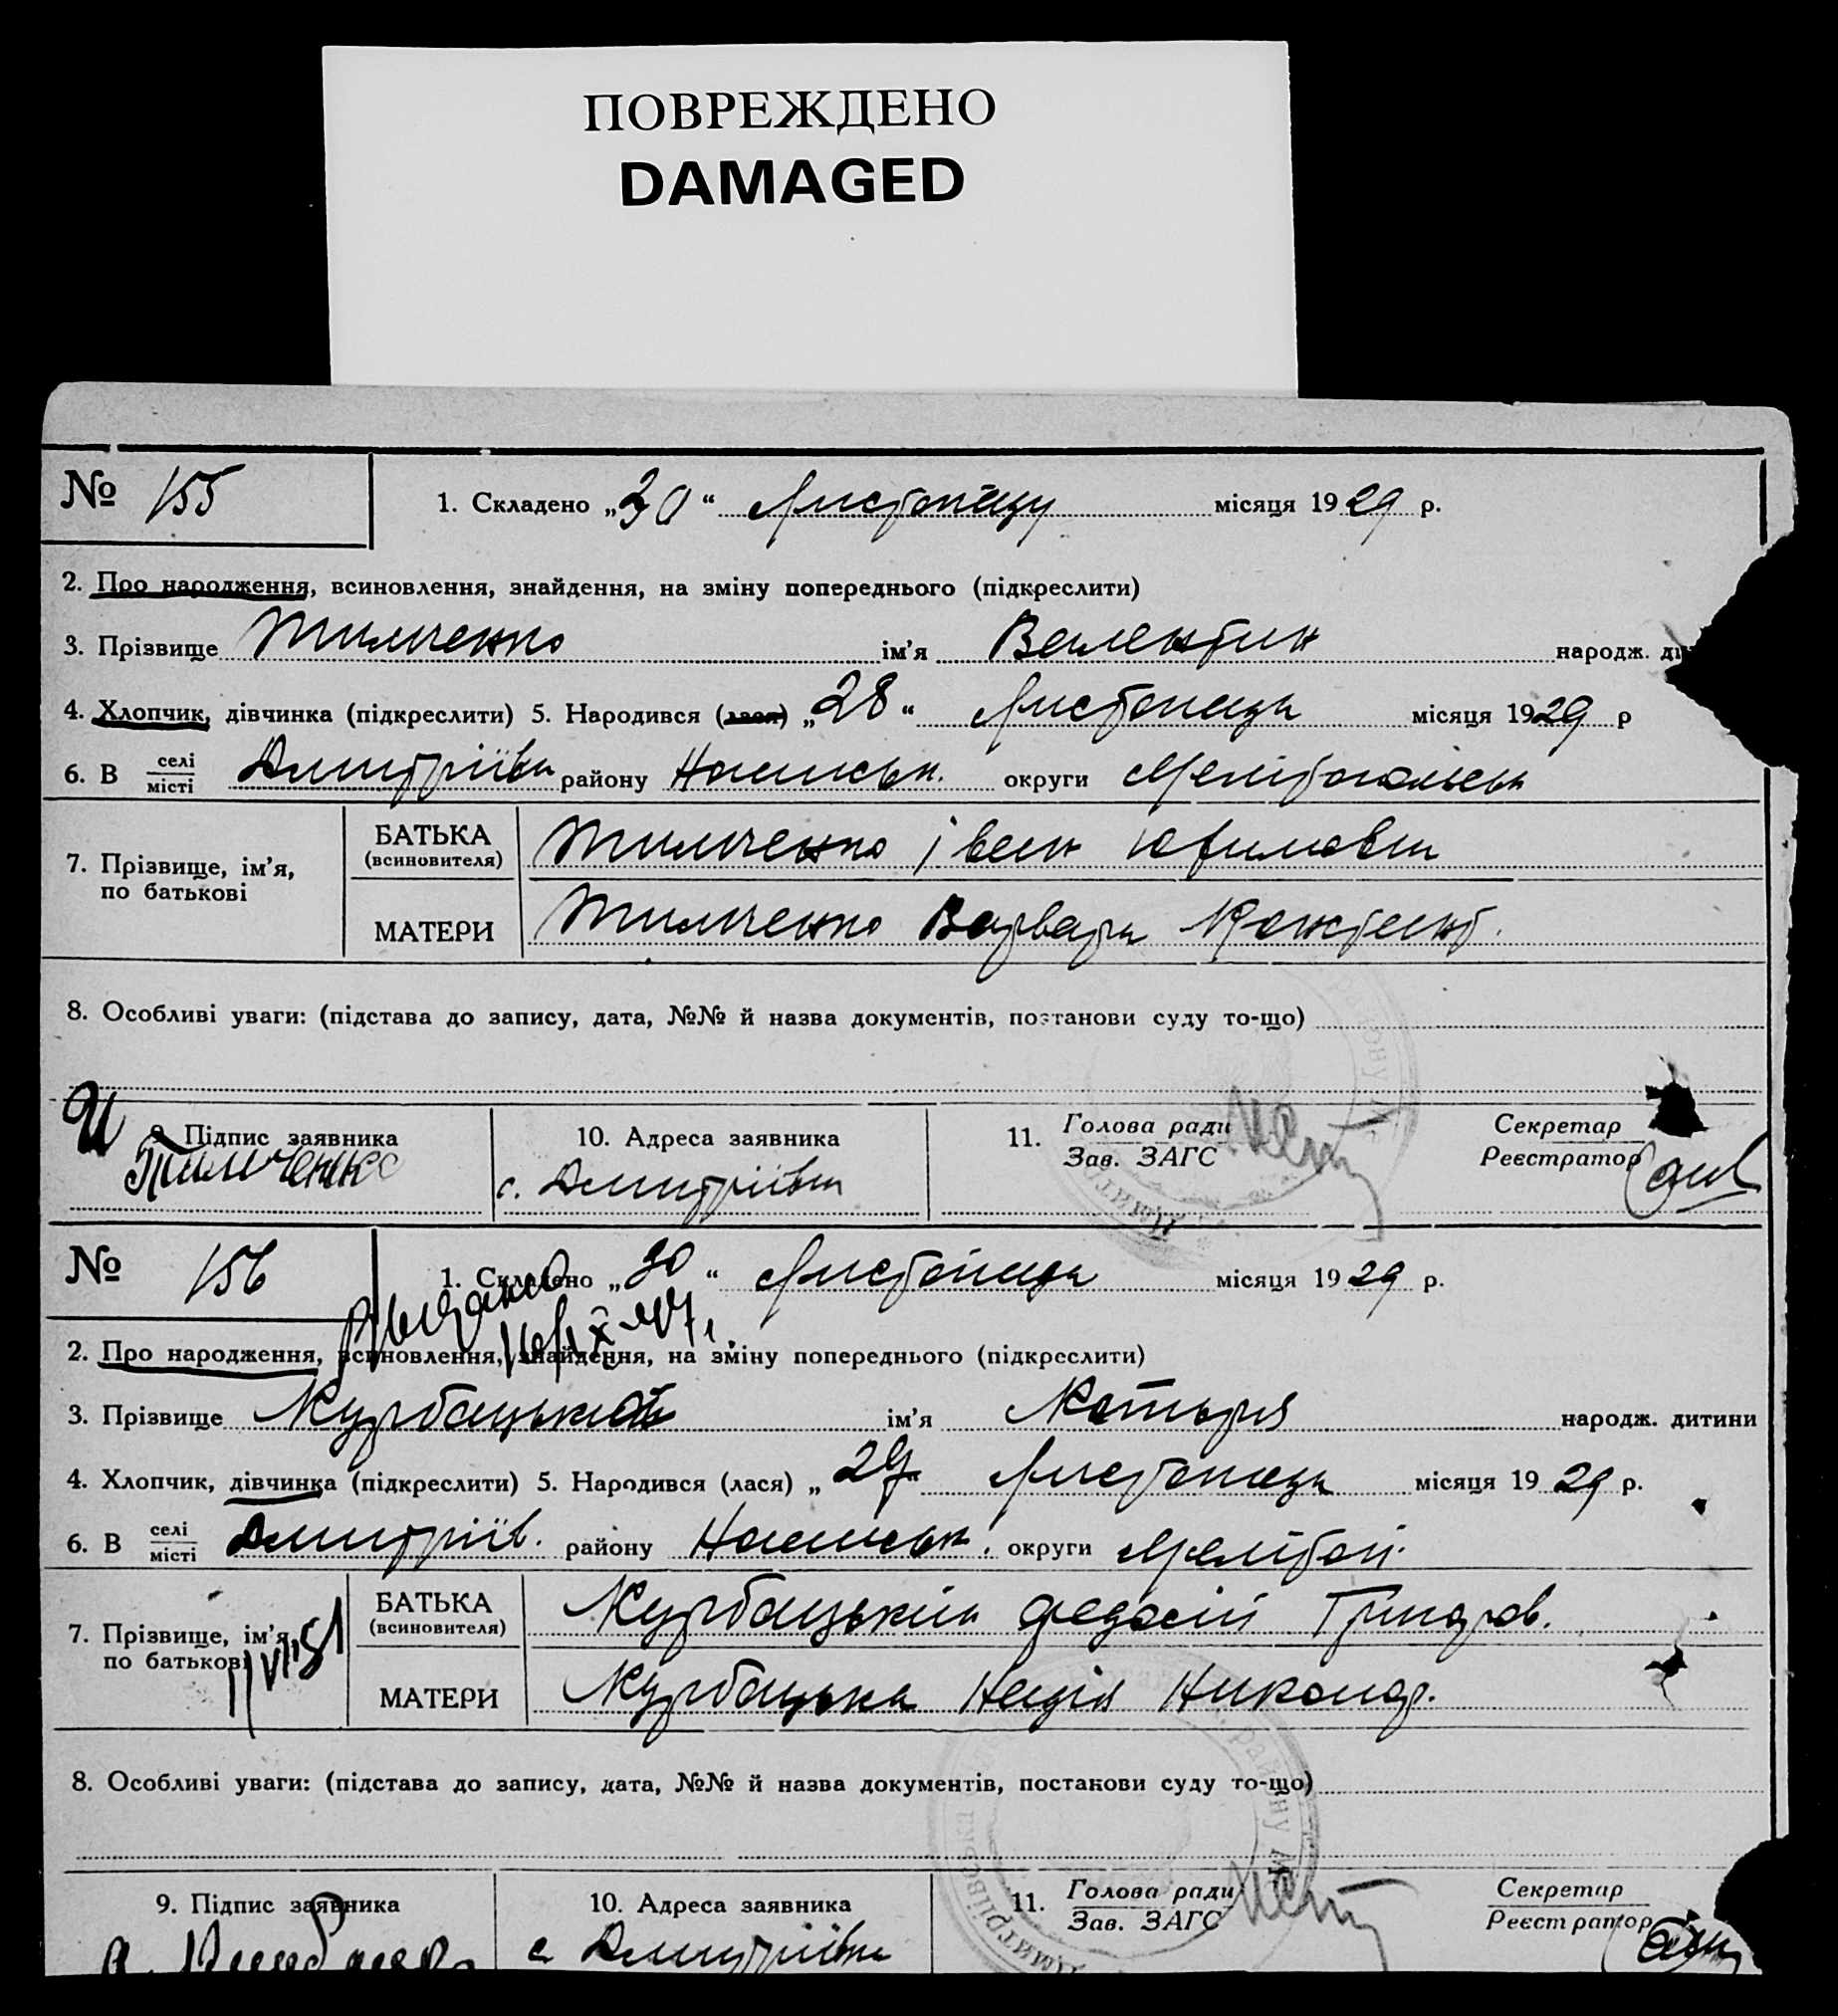 ПОВРЕЖДЕНО
DAMAGED
№ 155
1. Складено „30“ Листопаду місяця 1929 р.
2. Про народження, всиновлення, знайдення, на зміну попереднього (підкреслити)
3. Прізвище Тимченко ім’я Валентин народж. ди
4. Хлопчик, дівчинка (підкреслити) 5. Народився (лася) „28“ Листопада місяця 1929 р
6. В селі місті Дмитріївка району округи Мелітопольськ
7. Прізвище, ім’я, по батькові
БАТЬКА (всиновителя) Тимченко Іван Юхимович
МАТЕРИ Тимченко Варвара Констант.
8. Особливі уваги: (підстава до запису, дата, №№ й назва документів, постанови суду то-що)
И
9. Підпис заявника
Тимченко
10. Адреса заявника
с. Дмитріївка
11. Голова ради
Зав. ЗАГС
Секретар
Реєстратор
№ 156
1. Складено „30“ Листопада місяця 1929 р.
2. Про народження, всиновлення, знайдення, на зміну попереднього (підкреслити)
3. Прізвище ім’я народж. дитини
4. Хлопчик, дівчинка (підкреслити) 5. Народився (лася) „29“ Листопада місяця 1929 р.
6. В селі місті Дмитріїв. району округи Мелітоп.
7. Прізвище, ім’я, по батькові
11 VII 51
БАТЬКА (всиновителя) Курбацький Федосій
МАТЕРИ Курбацька Надія Никанор.
8. Особливі уваги: (підстава до запису, дата, №№ й назва документів, постанови суду то-що)
9. Підпис заявника
10. Адреса заявника
с Дмитріївка
11. Голова ради
Зав. ЗАГС
Секретар
Реєстратор